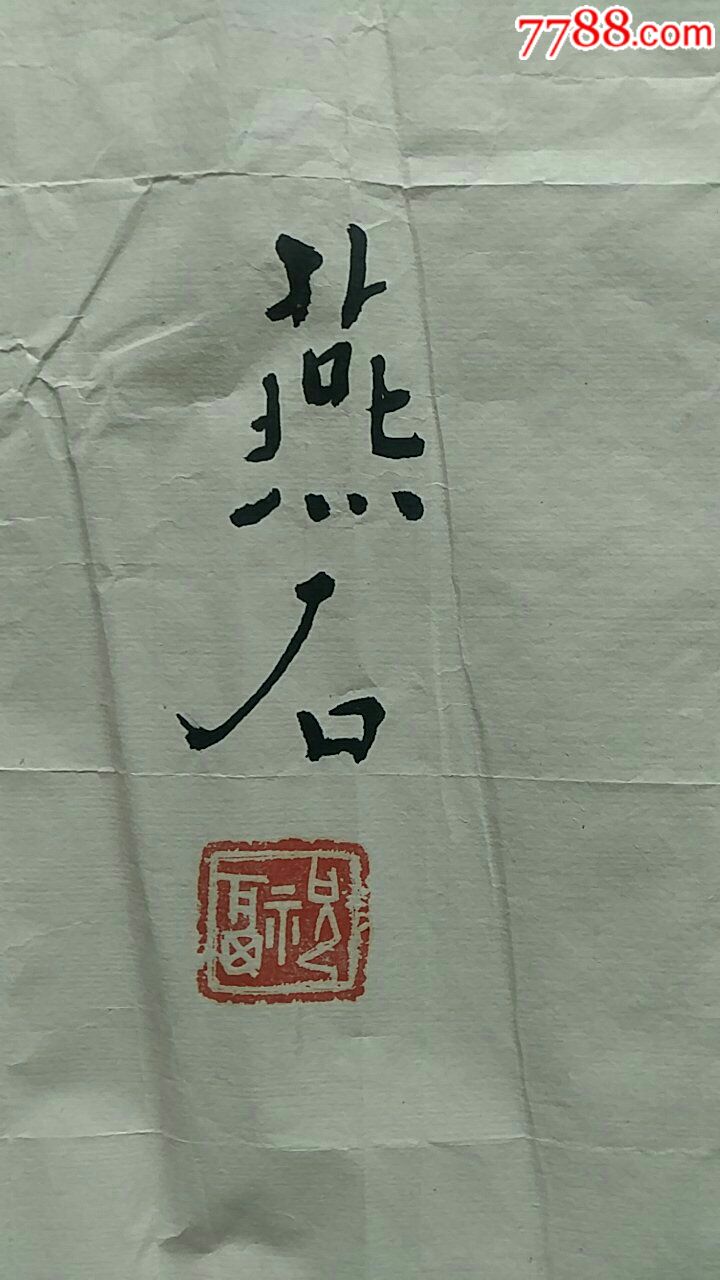 7788.com
燕石